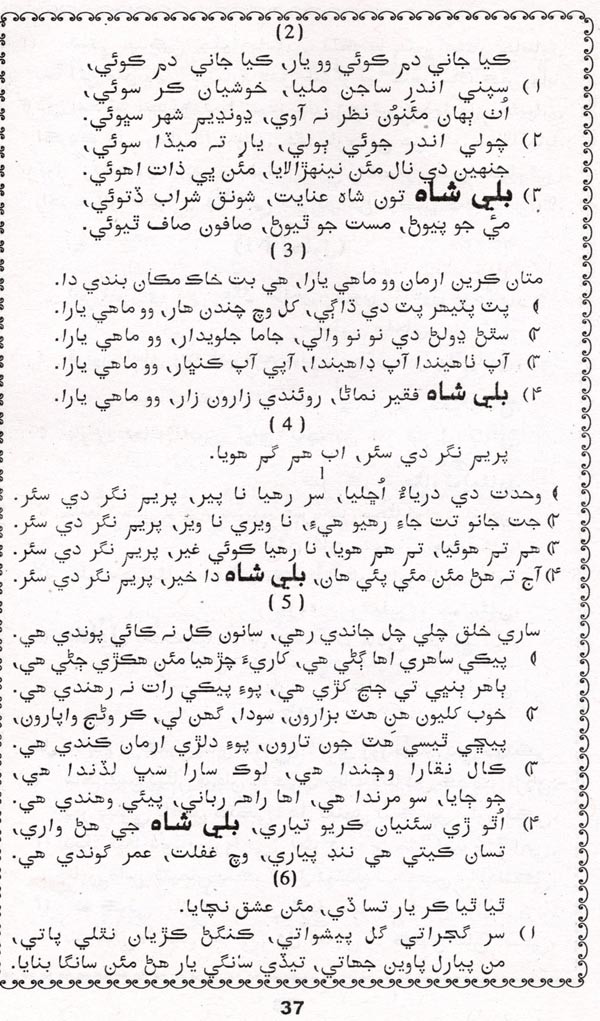 (2)
ڪيا جاني دم ڪوئي وو يار، ڪيا جاني دم ڪوئي،
۱) سپني اندر ساجن مليا، خوشيان ڪر سوئي،
اُٺ بهان مئنوُن نظر نہ آوي، ڍونڍيم شهر سڀوئي.
۲) چولي اندر جوئي ٻولي، يار تہ ميڏا سوئي،
جنهين دي نال مئن نينهڙا لايا، مئن ڀي ذات اهوئي.
۳) بلي شاھ تون شاھ عنايت، شونق شراب ڏتوئي،
مئي جو پيوڻ، مست جو ٿيوڻ، صافون صاف ٿيوئي.
( 3 )
متان ڪرين ارمان وو ماهي يارا، هي بت خاڪ مڪان بندي دا.
۱ پٽ پٽيهر پٽ دي ڌاڳي، گل وچ چندن هار، وو ماهي يارا.
۲) سٿڻ ڍولڻ دي نو نو والي، جاما جلويدار، وو ماهي يارا.
۳) آپ ٺاهيندا آپ ڊاهيندا، آپي آپ ڪنڀار، وو ماهي يارا.
۴) بلي شاھ فقير نماڻا، روئندي زارون زار، وو ماهي يارا.
( 4 )
پريم نگر دي سئر، اب هم گم هويا.
۱) وحدت دي درياءُ اُڇليا، سر رهيا نا پير، پريم نگر دي سئر.
۲) جت جانو تت جاءِ رهيو هيءِ، نا ويري نا ويَر، پريم نگر دي سئر.
۳) هم تم هوئيا، تم هم هويا، نا رهيا ڪوئي غير، پريم نگر دي سئر.
۴) آج تہ هڻ مئن مئي پئي هان، بلي شاھ دا خير، پريم نگر دي سئر.
( 5 )
ساري خلق چلي چل جاندي رهي، سانون ڪل نہ ڪائي پوندي هي.
۱ پيڪي ساهري اها ڳڻي هي، ڪاريءَ چڙهيا مئن هڪڙي ڄڻي هي،
ٻاهر ٻنڀي تي ڄڃ کڙي هي، پوءِ پيڪي رات نہ رهندي هي.
۲) خوب کليون هن هٽ بزارون، سودا، گهن لي، ڪر وڻج واپارون،
پيڇي ٿيسي هٽ جون تارون، پوءِ دلڙي ارمان ڪندي هي.
۳) ڪال نقارا وڄندا هي، لوڪ سارا سڀ لڏندا هي،
جو ڄايا، سو مرندا هي، اها راهہ رباني، پيئي وهندي هي.
۴) اُٿو ڙي سئنيان ڪريو تياري، بلي شاھ جي هڻ واري،
تسان ڪيتي هي ننڊ پياري، وچ غفلت، عمر گوندي هي.
(6)
ٿيا ٿيا ڪر يار تسا ڏي، مئن عشق نچايا.
۱) سر گجراتي گل پيشواتي، ڪنگڻ ڪڙيان نٿلي پاتي،
من پيارل پاوين جهاتي، تيڏي سانگي يار هڻ مئن سانگا بنايا.
37